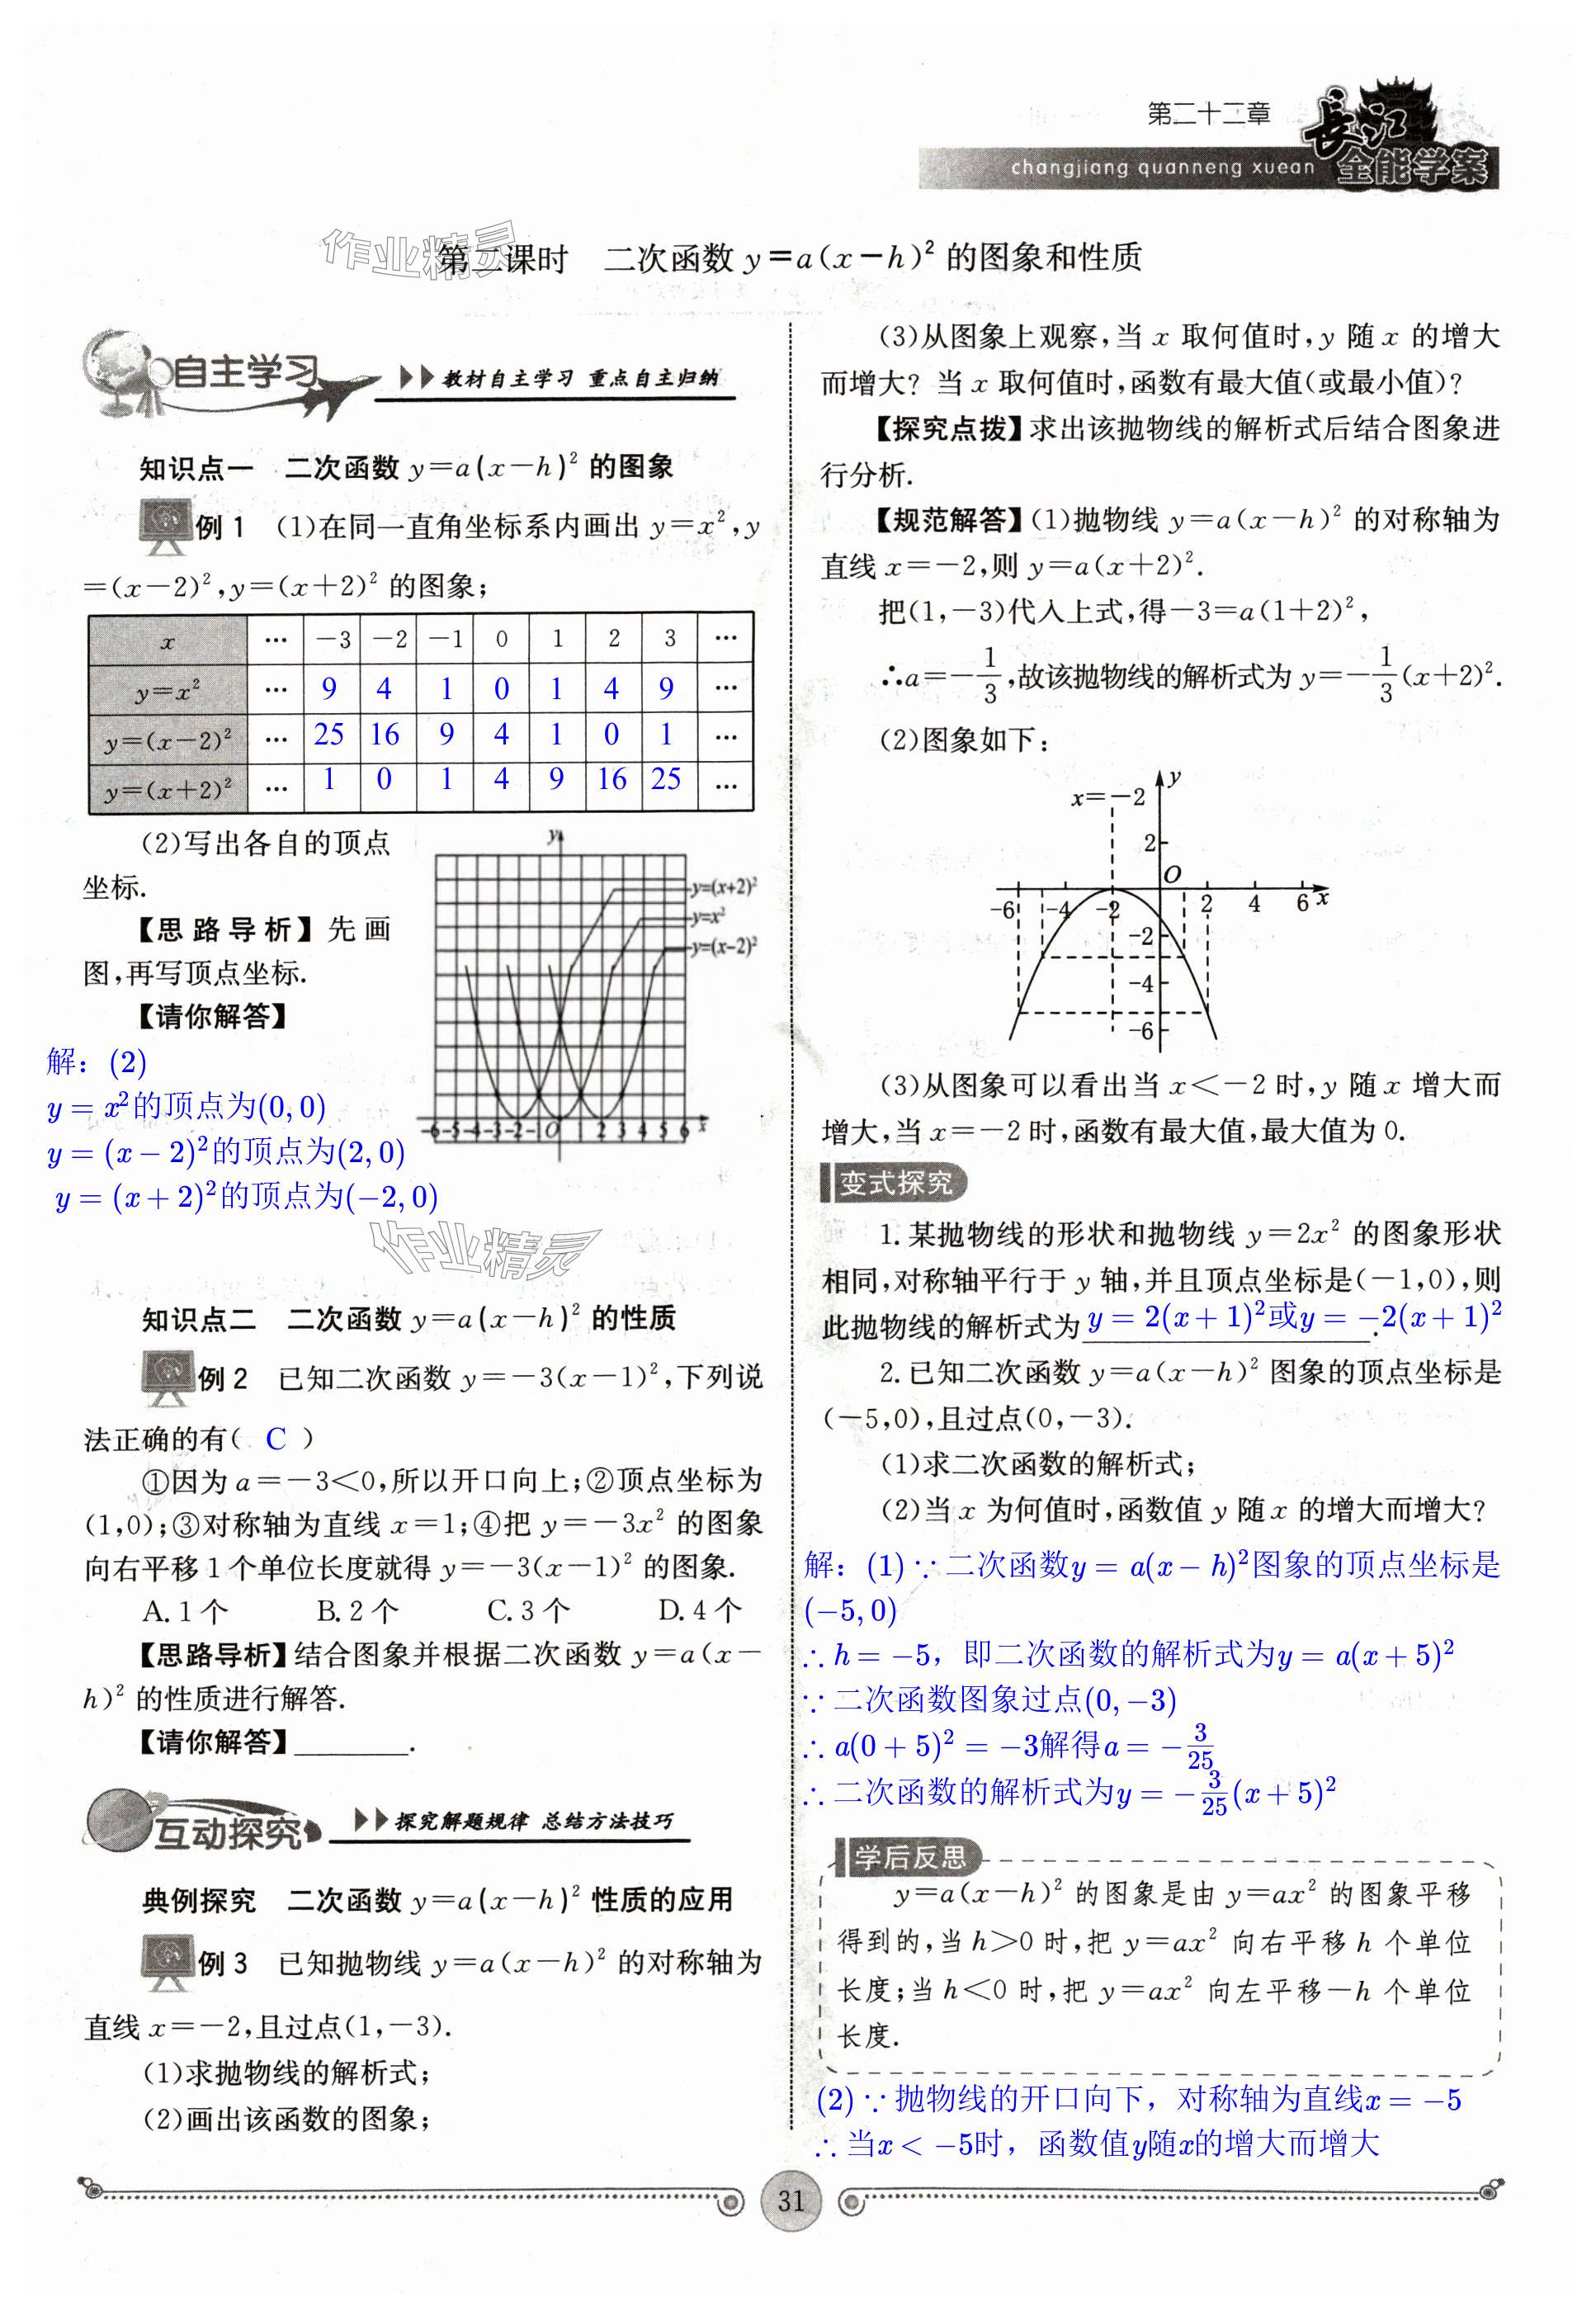 第二十二章
長江
全能学案
changjiang quanneng xuean
作业精灵
第二课时 二次函数 y=a(x-h)² 的图象和性质
自主学习 教材自主学习 重点自主归纳
知识点一 二次函数 y=a(x-h)² 的图象
例 1 (1)在同一直角坐标系内画出 y=x²,y
=(x-2)²,y=(x+2)² 的图象;
x … -3 -2 -1 0 1 2 3 …
y=x² … 9 4 1 0 1 4 9 …
y=(x-2)² … 25 16 9 4 1 0 1 …
y=(x+2)² … 1 0 1 4 9 16 25 …
(2)写出各自的顶点
坐标.
【思路导析】先画
图,再写顶点坐标.
【请你解答】
y
y=(x+2)²
y=x²
y=(x-2)²
-6-5-4-3-2-1O 1 2 3 4 5 6 x
解：(2)
y = x²的顶点为(0, 0)
y = (x − 2)²的顶点为(2, 0)
y = (x + 2)²的顶点为(−2, 0)
作业精灵
知识点二 二次函数 y=a(x-h)² 的性质
例 2 已知二次函数 y=-3(x-1)²,下列说
法正确的有( C )
①因为 a=-3<0,所以开口向上;②顶点坐标为
(1,0);③对称轴为直线 x=1;④把 y=-3x² 的图象
向右平移 1 个单位长度就得 y=-3(x-1)² 的图象.
A. 1 个 B. 2 个 C. 3 个 D. 4 个
【思路导析】结合图象并根据二次函数 y=a(x-
h)² 的性质进行解答.
【请你解答】________.
互动探究 探究解题规律 总结方法技巧
典例探究 二次函数 y=a(x-h)² 性质的应用
例 3 已知抛物线 y=a(x-h)² 的对称轴为
直线 x=-2,且过点(1,-3).
(1)求抛物线的解析式;
(2)画出该函数的图象;
(3)从图象上观察,当 x 取何值时,y 随 x 的增大
而增大? 当 x 取何值时,函数有最大值(或最小值)?
【探究点拨】求出该抛物线的解析式后结合图象进
行分析.
【规范解答】(1)抛物线 y=a(x-h)² 的对称轴为
直线 x=-2,则 y=a(x+2)².
把(1,-3)代入上式,得-3=a(1+2)²,
∴a=-1/3,故该抛物线的解析式为 y=-1/3(x+2)².
(2)图象如下:
x=-2 y
2
O
-6 -4 -2 2 4 6 x
-2
-4
-6
(3)从图象可以看出当 x<-2 时,y 随 x 增大而
增大,当 x=-2 时,函数有最大值,最大值为 0.
变式探究
1. 某抛物线的形状和抛物线 y=2x² 的图象形状
相同,对称轴平行于 y 轴,并且顶点坐标是(-1,0),则
此抛物线的解析式为 y = 2(x + 1)²或y = −2(x + 1)² .
2. 已知二次函数 y=a(x-h)² 图象的顶点坐标是
(-5,0),且过点(0,-3).
(1)求二次函数的解析式;
(2)当 x 为何值时,函数值 y 随 x 的增大而增大?
解：(1) ∵ 二次函数y = a(x − h)²图象的顶点坐标是
(−5, 0)
∴ h = −5，即二次函数的解析式为y = a(x + 5)²
∵ 二次函数图象过点(0, −3)
∴ a(0 + 5)² = −3解得a = −3/25
∴ 二次函数的解析式为y = −3/25(x + 5)²
学后反思
y=a(x-h)² 的图象是由 y=ax² 的图象平移
得到的,当 h>0 时,把 y=ax² 向右平移 h 个单位
长度;当 h<0 时,把 y=ax² 向左平移-h 个单位
长度.
(2) ∵ 抛物线的开口向下，对称轴为直线x = −5
∴ 当x < −5时，函数值y随x的增大而增大
31